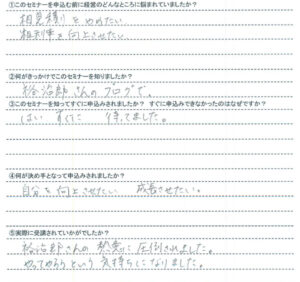 ①このセミナーを申込む前に経営のどんなところに悩まれていましたか?
相見積りをやめたい
粗利率を向上させたい。
②何がきっかけでこのセミナーを知りましたか?
裕治郎さんのブログで。
③このセミナーを知ってすぐに申込みされましたか? すぐに申込みできなかったのはなぜですか?
はい すぐに 待ってました。
④何が決め手となって申込みされましたか?
自分を向上させたい 成長させたい。
⑤実際に受講されていかがでしたか?
裕治郎さんの熱意に圧倒されました。
やってやろうという気持ちになりました。